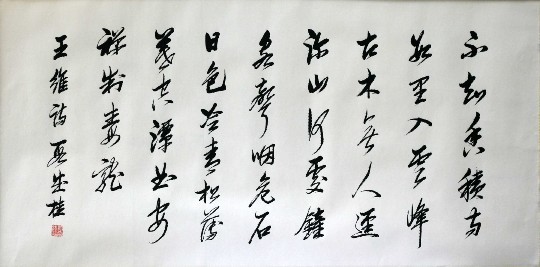 不知香積寺
數里入雲峰
古木無人逕
深山何處鐘
泉聲咽危石
日色冷青松薄
暮空潭曲安
禪制毒龍
王維詩